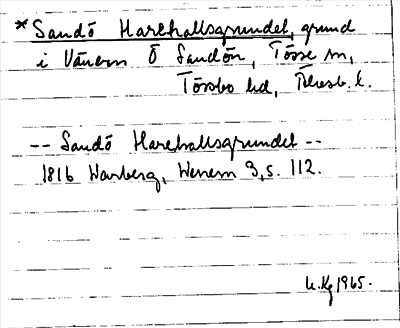 *Sandö Harehallsgrundet, grund
i Vänern Ö Sandön, Tösse sn,
Tössbo hd, Älvsb. l.
-- Sandö Harehallsgrundet --
1816 Warberg, Wenern 3, s. 112.
1965.